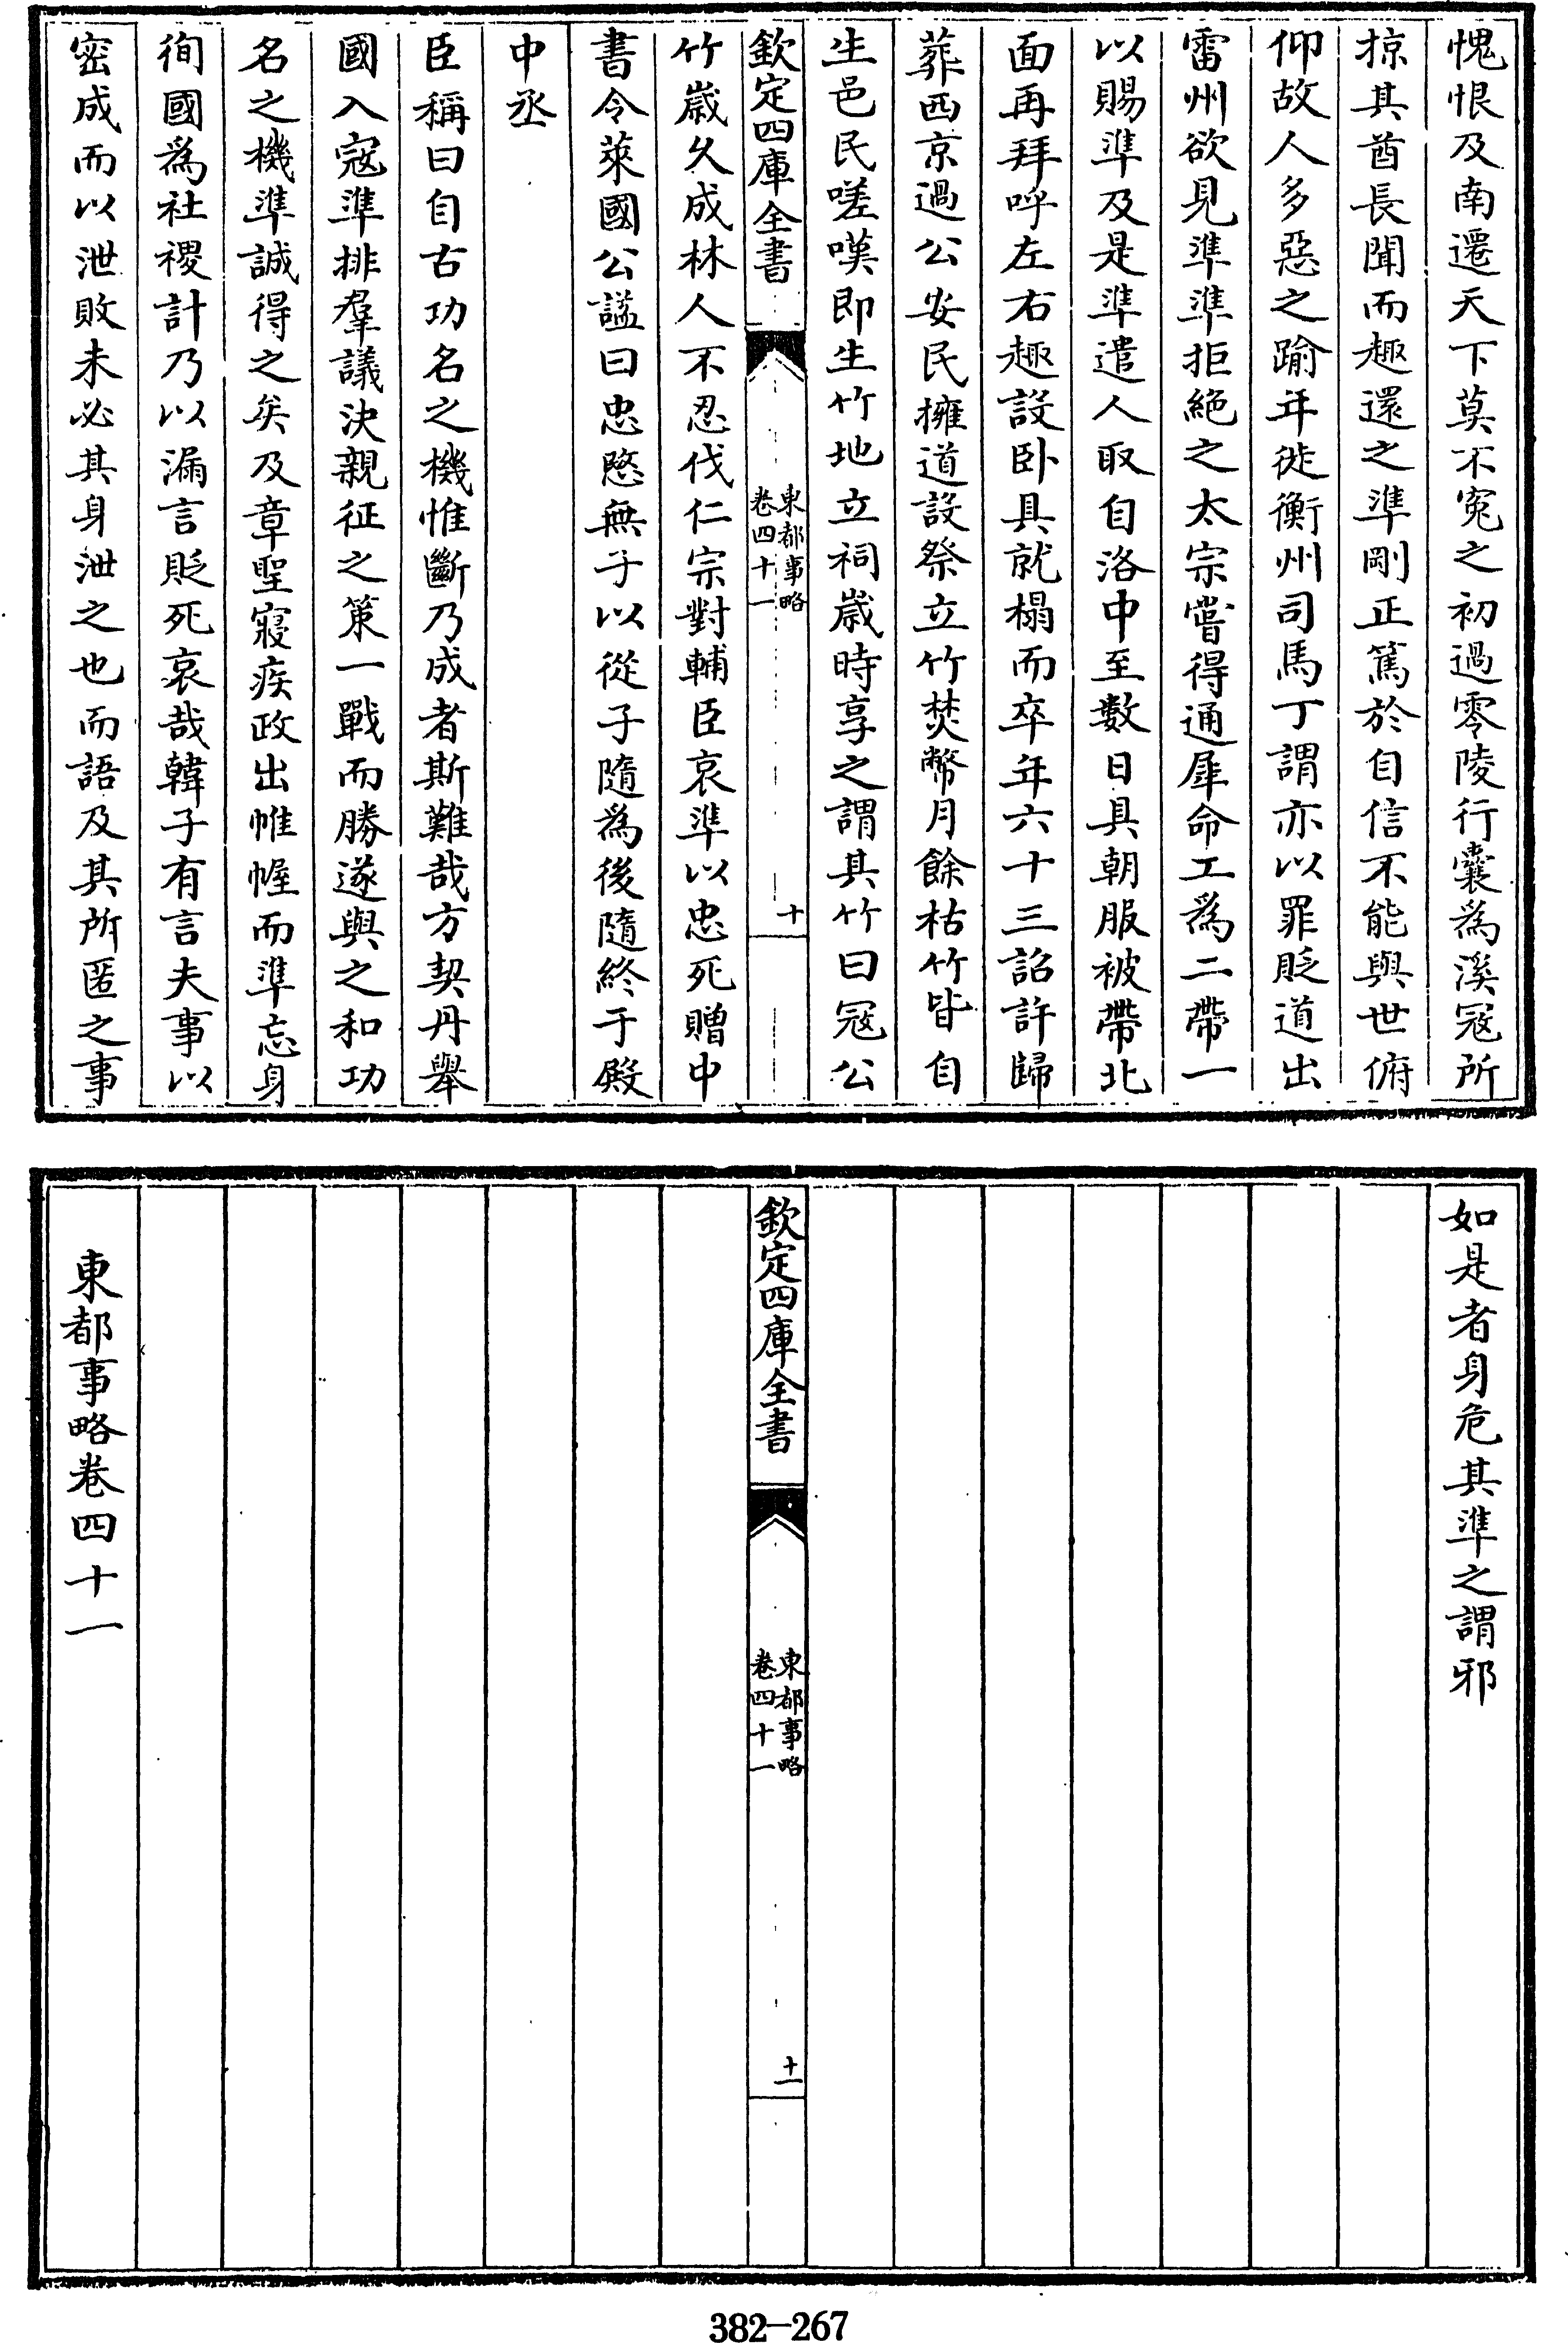 愧恨及南遷天下莫不寃之初過零陵行囊為溪寇所
掠其酋長聞而趣還之準剛正篤於自信不能與世俯
仰故人多惡之踰年徙衡州司馬丁謂亦以罪貶道出
雷州欲見準準拒絶之太宗嘗得通犀命工為二帶一
以賜準及是準遣人取自洛中至數日具朝服被帶北
面再拜呼左右趣設卧具就榻而卒年六十三詔許歸
葬西京過公安民擁道設祭立竹焚幣月餘枯竹皆自
生邑民嗟嘆即生竹地立祠歲時享之謂其竹曰寇公
欽定四庫全書
東都事略
卷四十一
十
竹歲久成林人不忍伐仁宗對輔臣哀準以忠死贈中
書令萊國公諡曰忠愍無子以從子隨為後隨終于殿
中丞
臣稱曰自古功名之機惟斷乃成者斯難哉方契丹舉
國入寇準排羣議決親征之策一戰而勝遂與之和功
名之機準誠得之矣及章聖寢疾政出帷幄而準忘身
徇國為社稷計乃以漏言貶死哀哉韓子有言夫事以
密成而以泄敗未必其身泄之也而語及其所匿之事
如是者身危其準之謂邪
欽定四庫全書
東都事略
卷四十一
十一
東都事略卷四十一
382-267